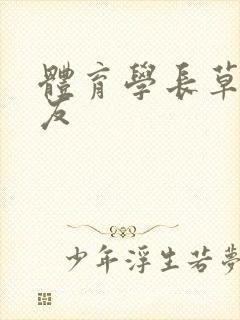 體育學長草
友
少年浮生若夢